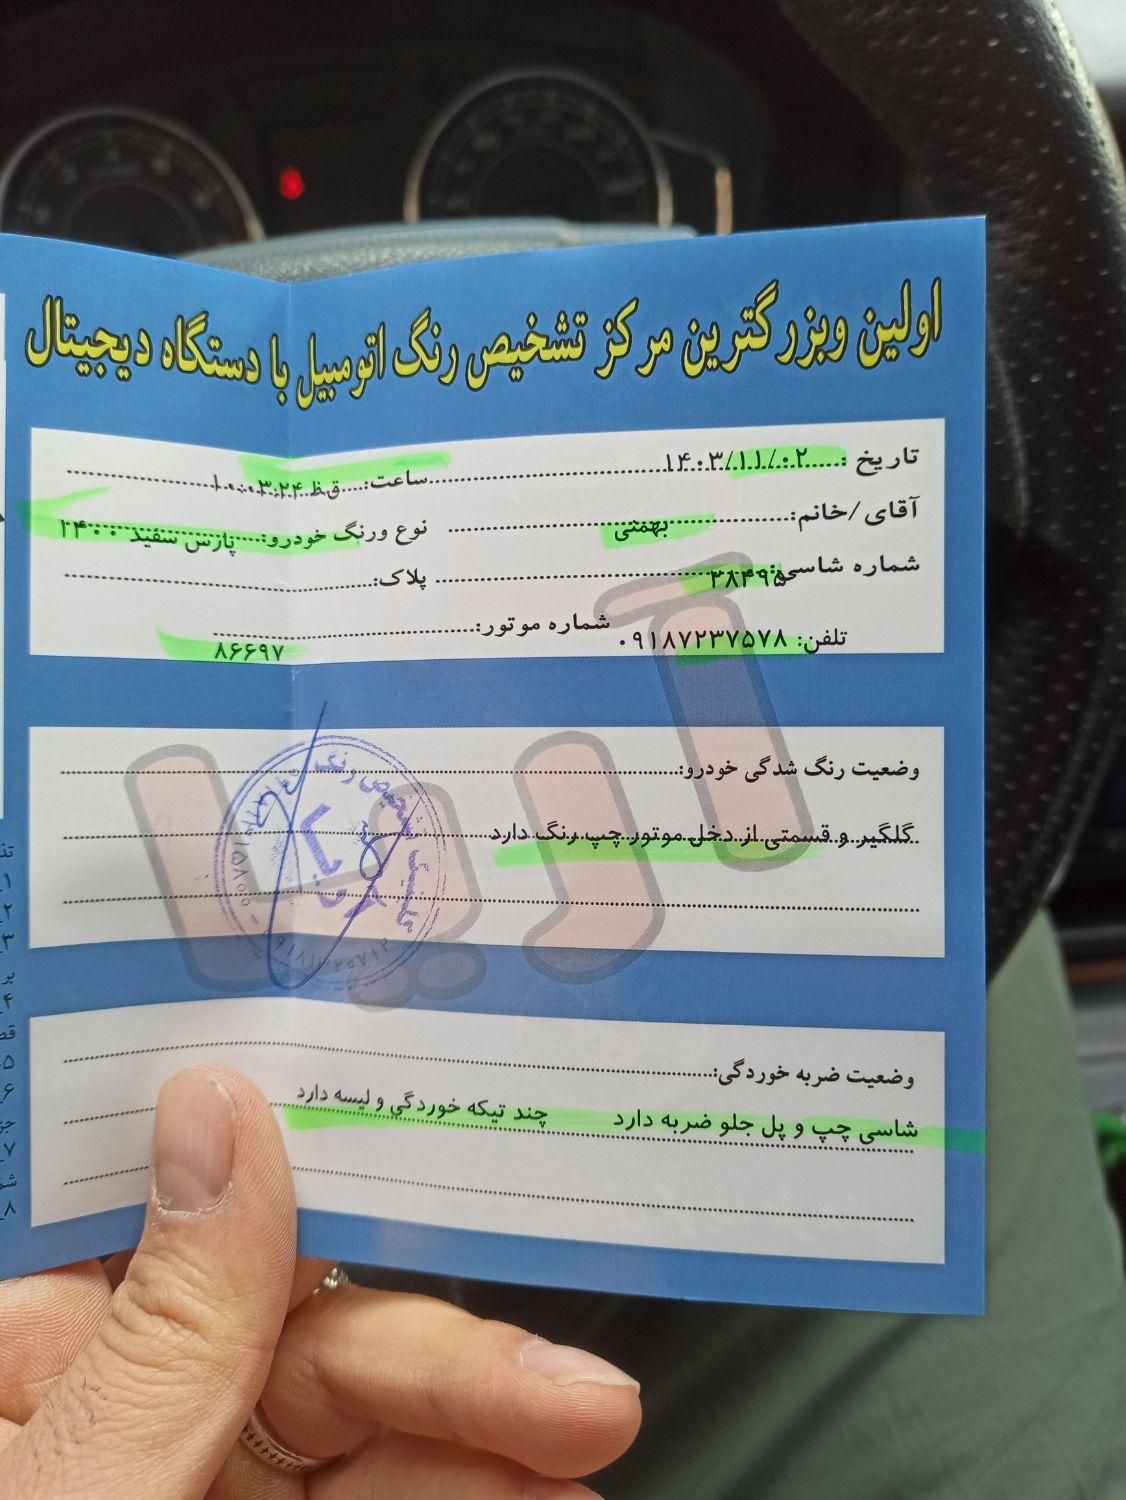 اولین وبزرگترین مرکز تشخیص رنگ اتومبیل با دستگاه دیجیتال
تاریخ : ۱۴۰۳/۱۱/۰۲ ساعت: ۱۰:۰۳:۲۴ ق.ظ
آقای /خانم: بهمتی نوع ورنگ خودرو: پارس سفید ۱۴۰۰
شماره شاسی: ۳۸۴۹۵ پلاک:
تلفن: ۰۹۱۸۷۲۳۷۵۷۸ شماره موتور: ۸۶۶۹۷
آریا
وضعیت رنگ شدگی خودرو:
گلگیر و قسمتی از دخل موتور چپ رنگ دارد
تشخیص رنگ
وضعیت ضربه خوردگی:
شاسی چپ و پل جلو ضربه دارد چند تیکه خوردگی و لیسه دارد